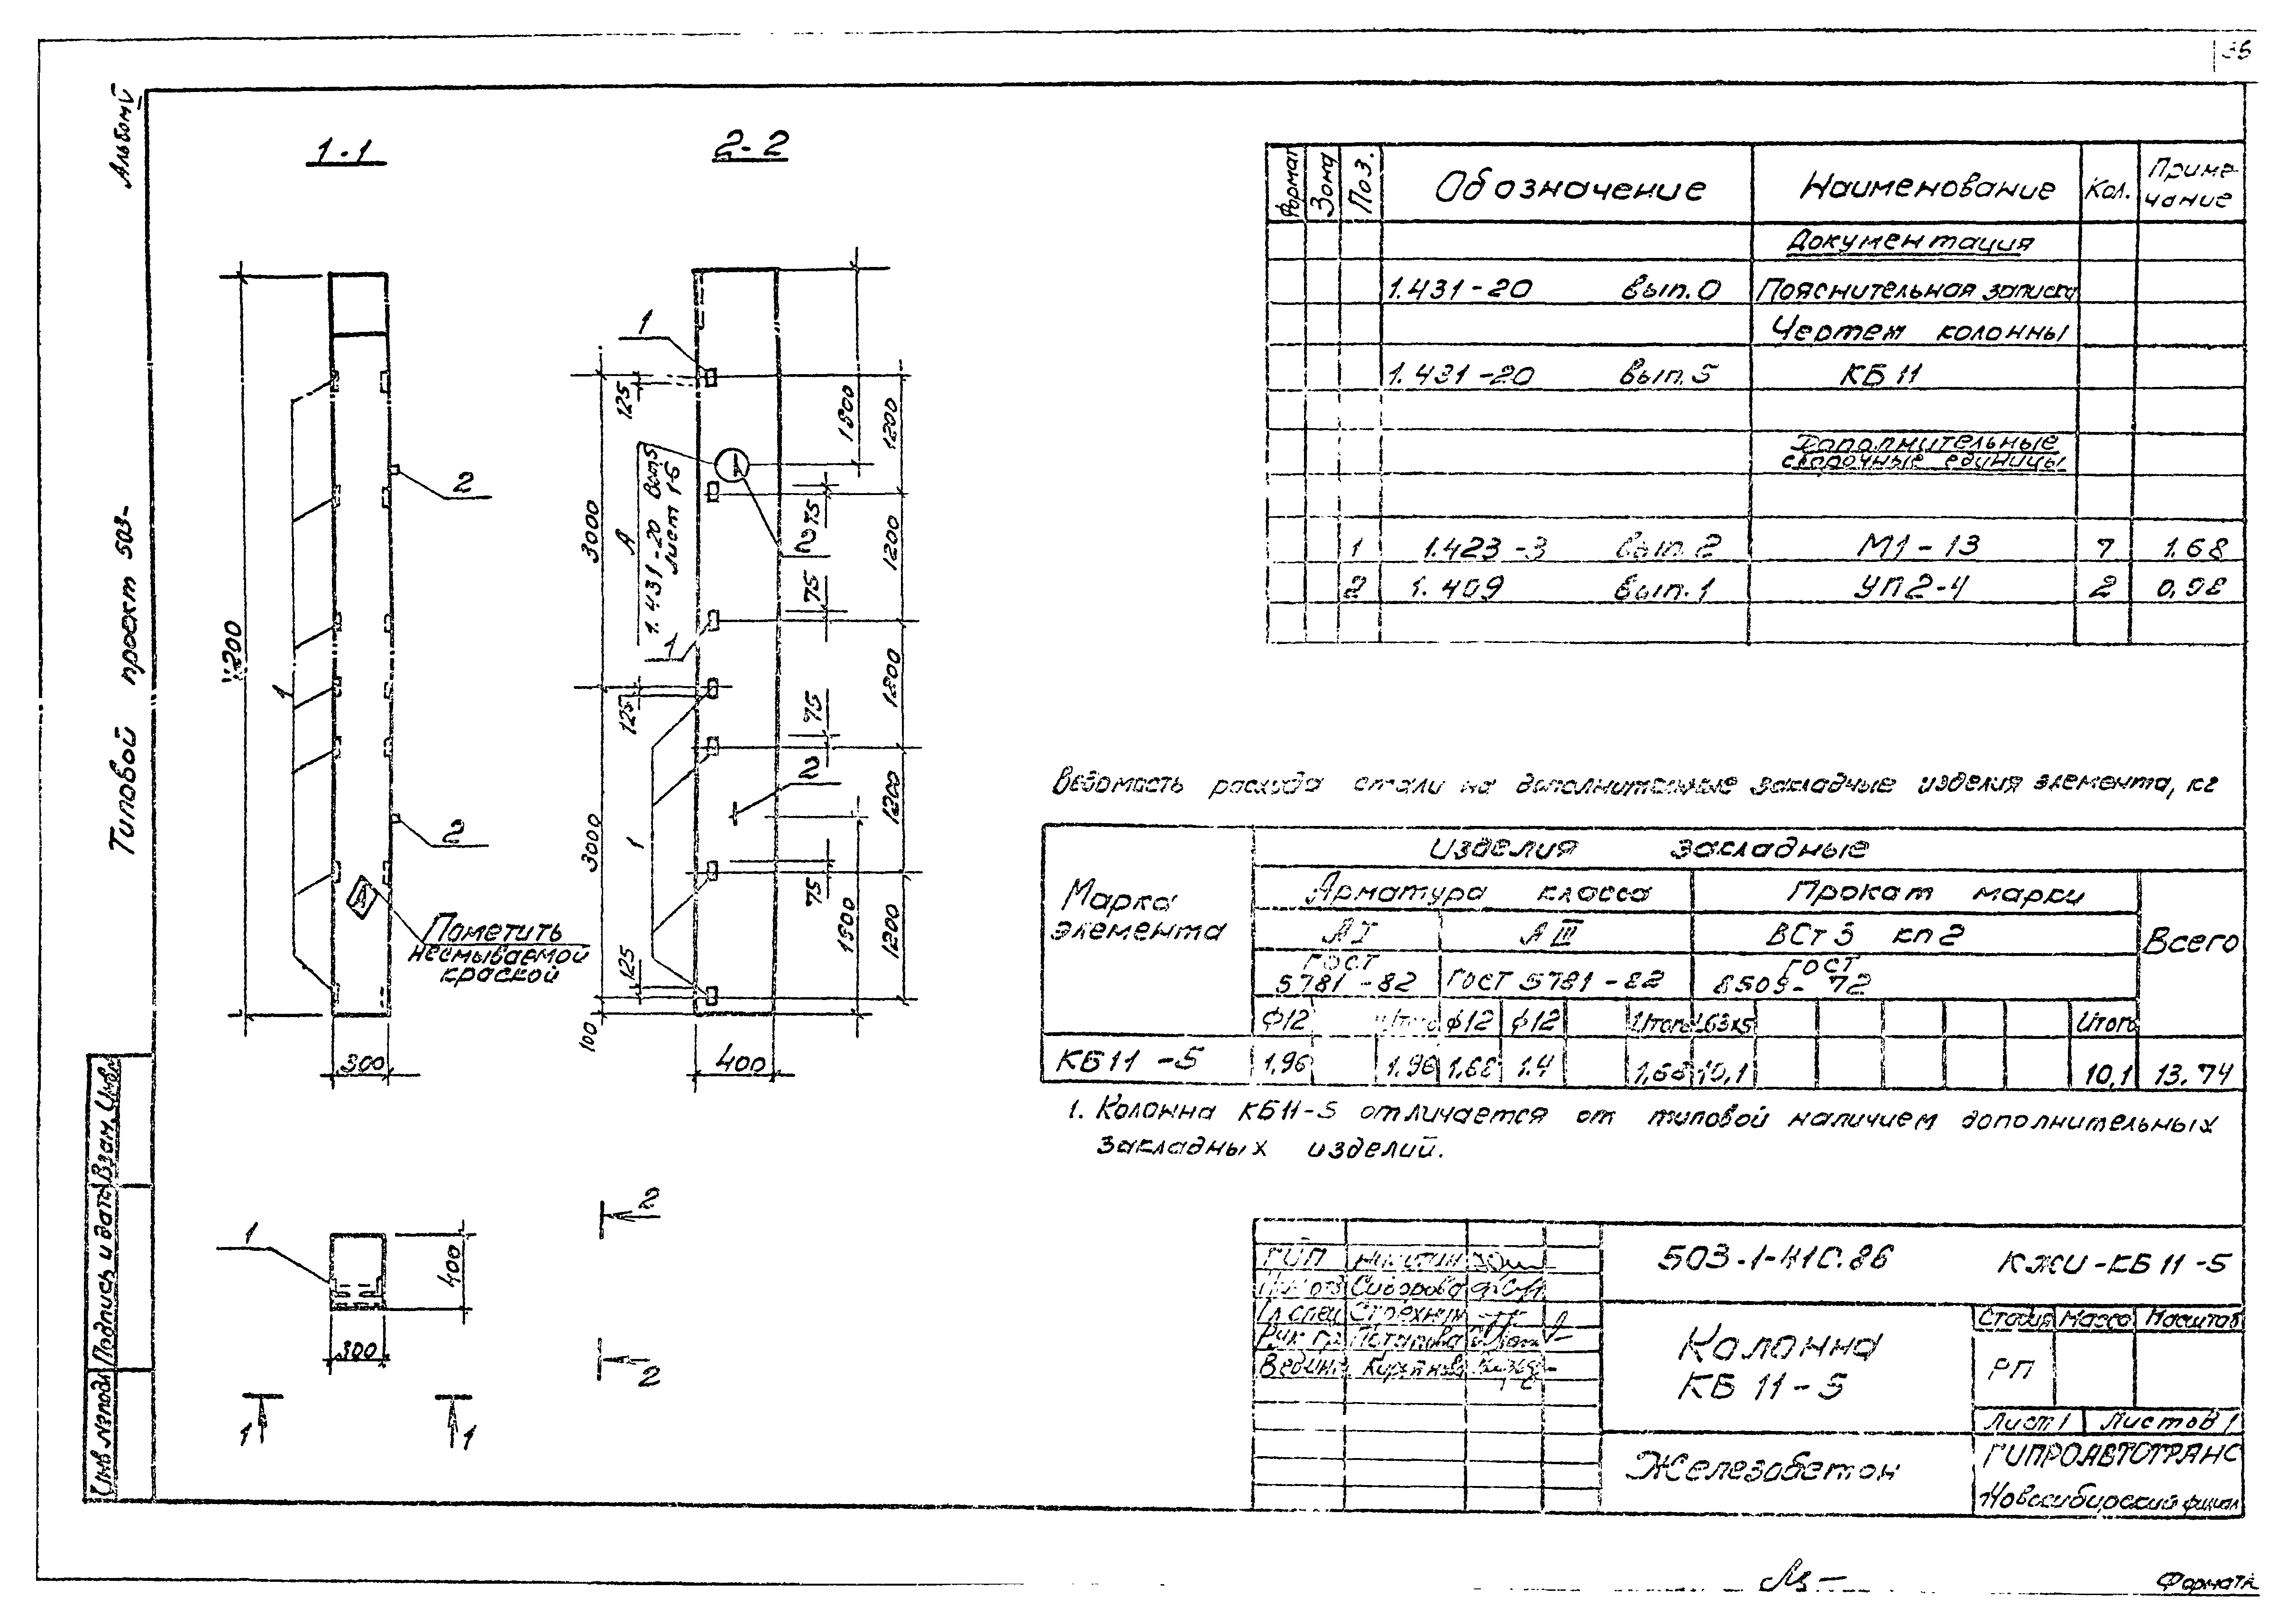 36
Альбом V
Типовой проект 503-
1-1
2-2
7200
1
2
2
Пометить
несмываемой
краской
300
1
125
3000
А
1.431-20 Вып5
Лист 16
1
125
1
3000
125
100
1800
1200
75
2
1200
75
1200
75
2
1200
75
1800
1200
400
1
400
300
2
2
1
1
Формат
Зона
Поз.
Обозначение
Наименование
Кол.
Приме-
чание
Документация
1.431-20 вып.0 Пояснительная записка
Чертеж колонны
1.431-20 вып.5 КБ 11
Дополнительные
сборочные единицы
1 1.423-3 вып.2 М1-13 7 1.68
2 1.409 вып.1 УП2-4 2 0,98
Ведомость расхода стали на дополнительные закладные изделия элемента, кг
Марка
элемента
Изделия закладные
Арматура класса
Прокат марки
Всего
А I
А III
ВСт 3 кп 2
ГОСТ
5781-82
ГОСТ 5781-82
ГОСТ
8509-72
Ф12 Итого ф12 ф12 Итого L63х5 Итого
КБ11-5 1,96 1,96 1,68 1.4 1,68 10,1 10,1 13.74
1. Колонна КБ11-5 отличается от типовой наличием дополнительных
закладных изделий.
ГИП
Сидорова
Гл спец
Рук гр
503.1-41С.86 КЖИ-КБ 11-5
Колонна
КБ 11-5
Стадия Масса Масштаб
РП
Лист 1 Листов 1
Железобетон
ГИПРОАВТОТРАНС
Новосибирский филиал
Инв №подл
Подпись и дата
Взам. Инв№
Формат